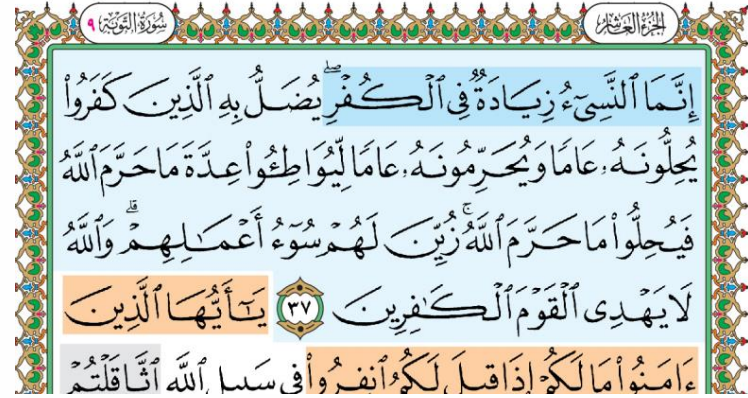 الجزء العاشر سورة التوبة ٩
إِنَّمَا ٱلنَّسِىٓءُ زِيَادَةٌ فِى ٱلْكُفْرِ ۖ يُضَلُّ بِهِ ٱلَّذِينَ كَفَرُوا۟
يُحِلُّونَهُۥ عَامًا وَيُحَرِّمُونَهُۥ عَامًا لِّيُوَاطِـُٔوا۟ عِدَّةَ مَا حَرَّمَ ٱللَّهُ
فَيُحِلُّوا۟ مَا حَرَّمَ ٱللَّهُ ۚ زُيِّنَ لَهُمْ سُوٓءُ أَعْمَـٰلِهِمْ ۗ وَٱللَّهُ
لَا يَهْدِى ٱلْقَوْمَ ٱلْكَـٰفِرِينَ ٣٧ يَـٰٓأَيُّهَا ٱلَّذِينَ
ءَامَنُوا۟ مَا لَكُمْ إِذَا قِيلَ لَكُمُ ٱنفِرُوا۟ فِى سَبِيلِ ٱللَّهِ ٱثَّاقَلْتُمْ